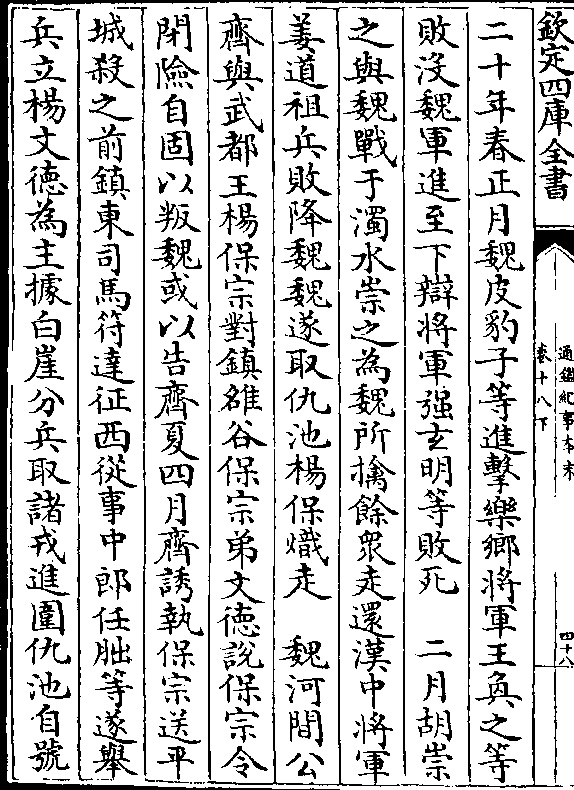 欽定四庫全書
通鑑紀事本末
卷十八下
四十八
二十年春正月魏皮豹子等進擊樂鄉將軍王奐之等
敗沒魏軍進至下辯將軍强玄明等敗死　二月胡崇
之與魏戰于濁水崇之為魏所擒餘衆走還漢中將軍
姜道祖兵敗降魏魏遂取仇池楊保熾走　魏河間公
齊與武都王楊保宗對鎮雒谷保宗弟文德說保宗令
閉險自固以叛魏或以告齊夏四月齊誘執保宗送平
城殺之前鎮東司馬符達征西從事中郎任朏等遂舉
兵立楊文德為主據白崖分兵取諸戎進圍仇池自號